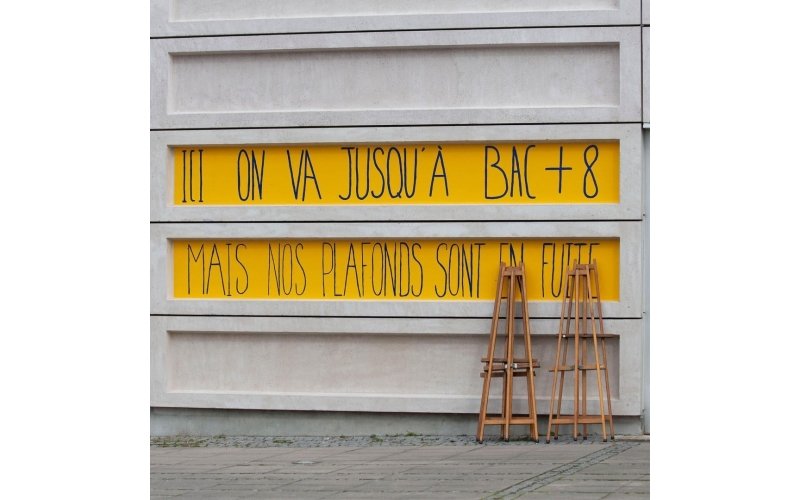 ICI ON VA JUSQU'À BAC+8
MAIS NOS PLAFONDS SONT EN FUITE